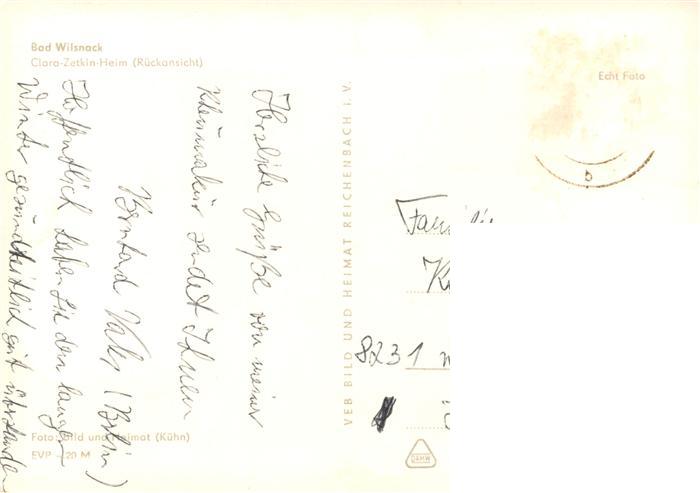 Bad Wilsnack
Clara-Zetkin-Heim (Rückansicht)
Echt Foto
Herzliche Grüße von meiner
Rheumakur sendet Ihnen
Bernhard (Berlin)
Hoffentlich haben Sie den langen
Winter gesundheitlich gut überstanden
VEB BILD UND HEIMAT REICHENBACH I. V.
Fam
8231
Foto: Bild und Heimat (Kühn)
EVP –,20 M
DAMW